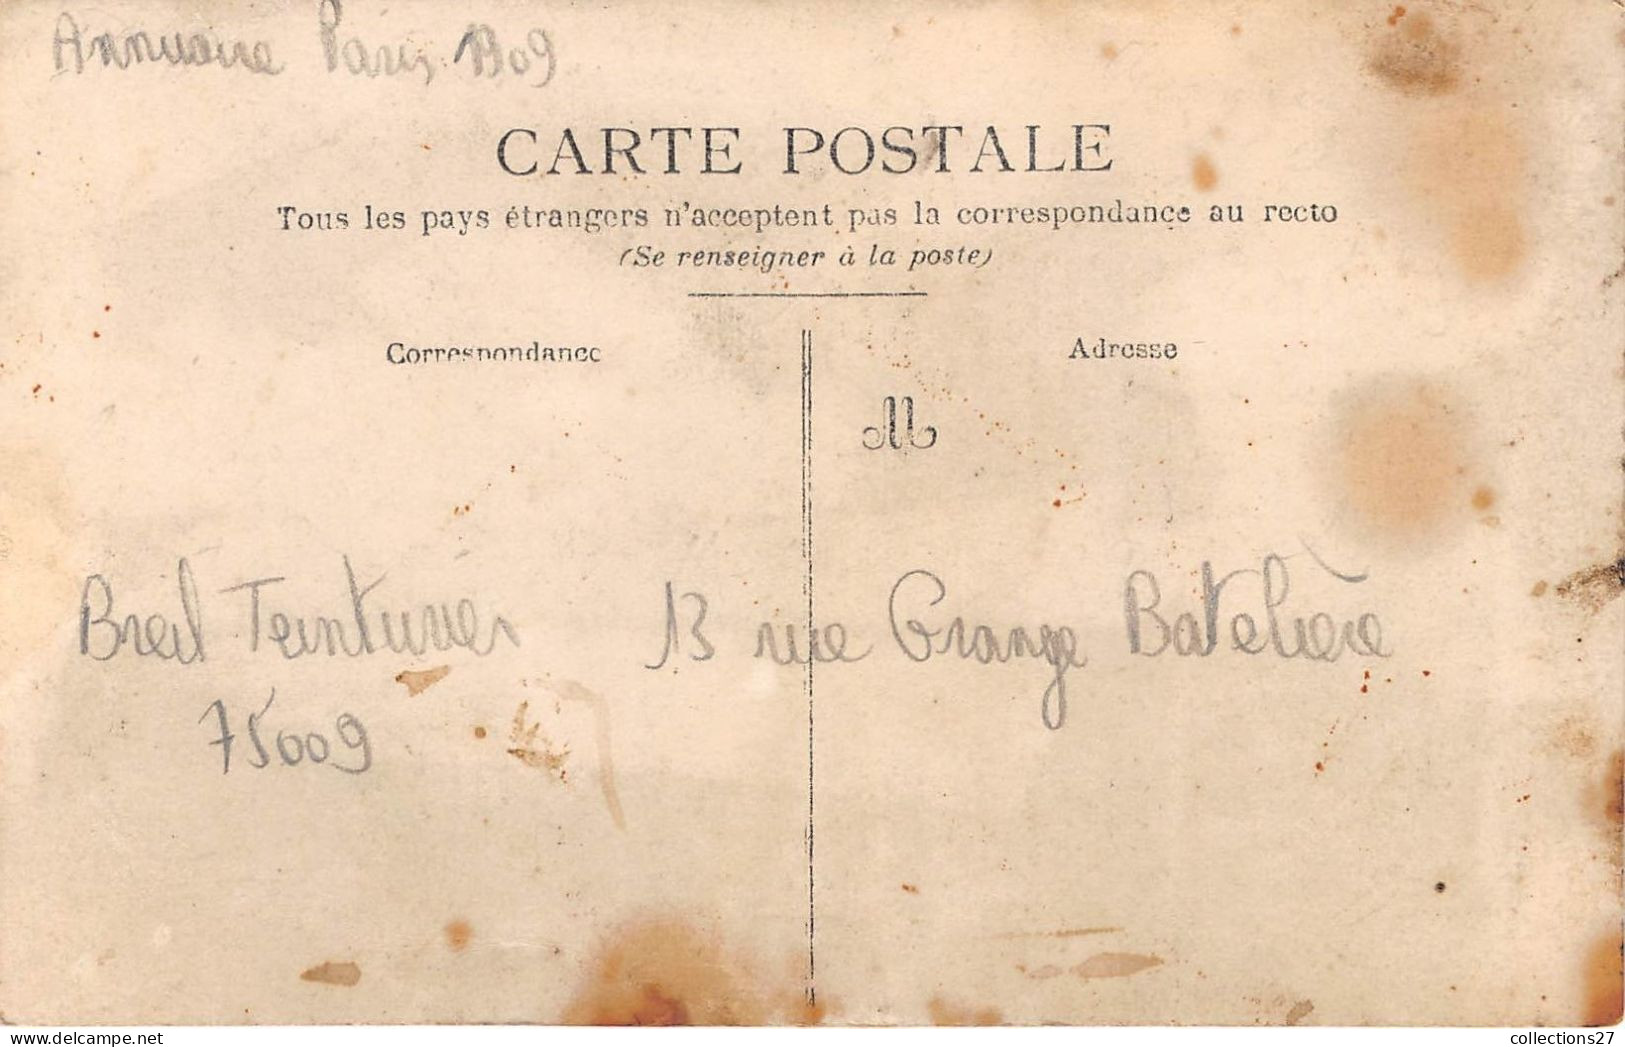 Annuaire Paris 1909
CARTE POSTALE
Tous les pays étrangers n'acceptent pas la correspondance au recto
(Se renseigner à la poste)
Correspondance
Adresse
M
Breil Teinturier 13 rue Grange Batelière
75009
collections27